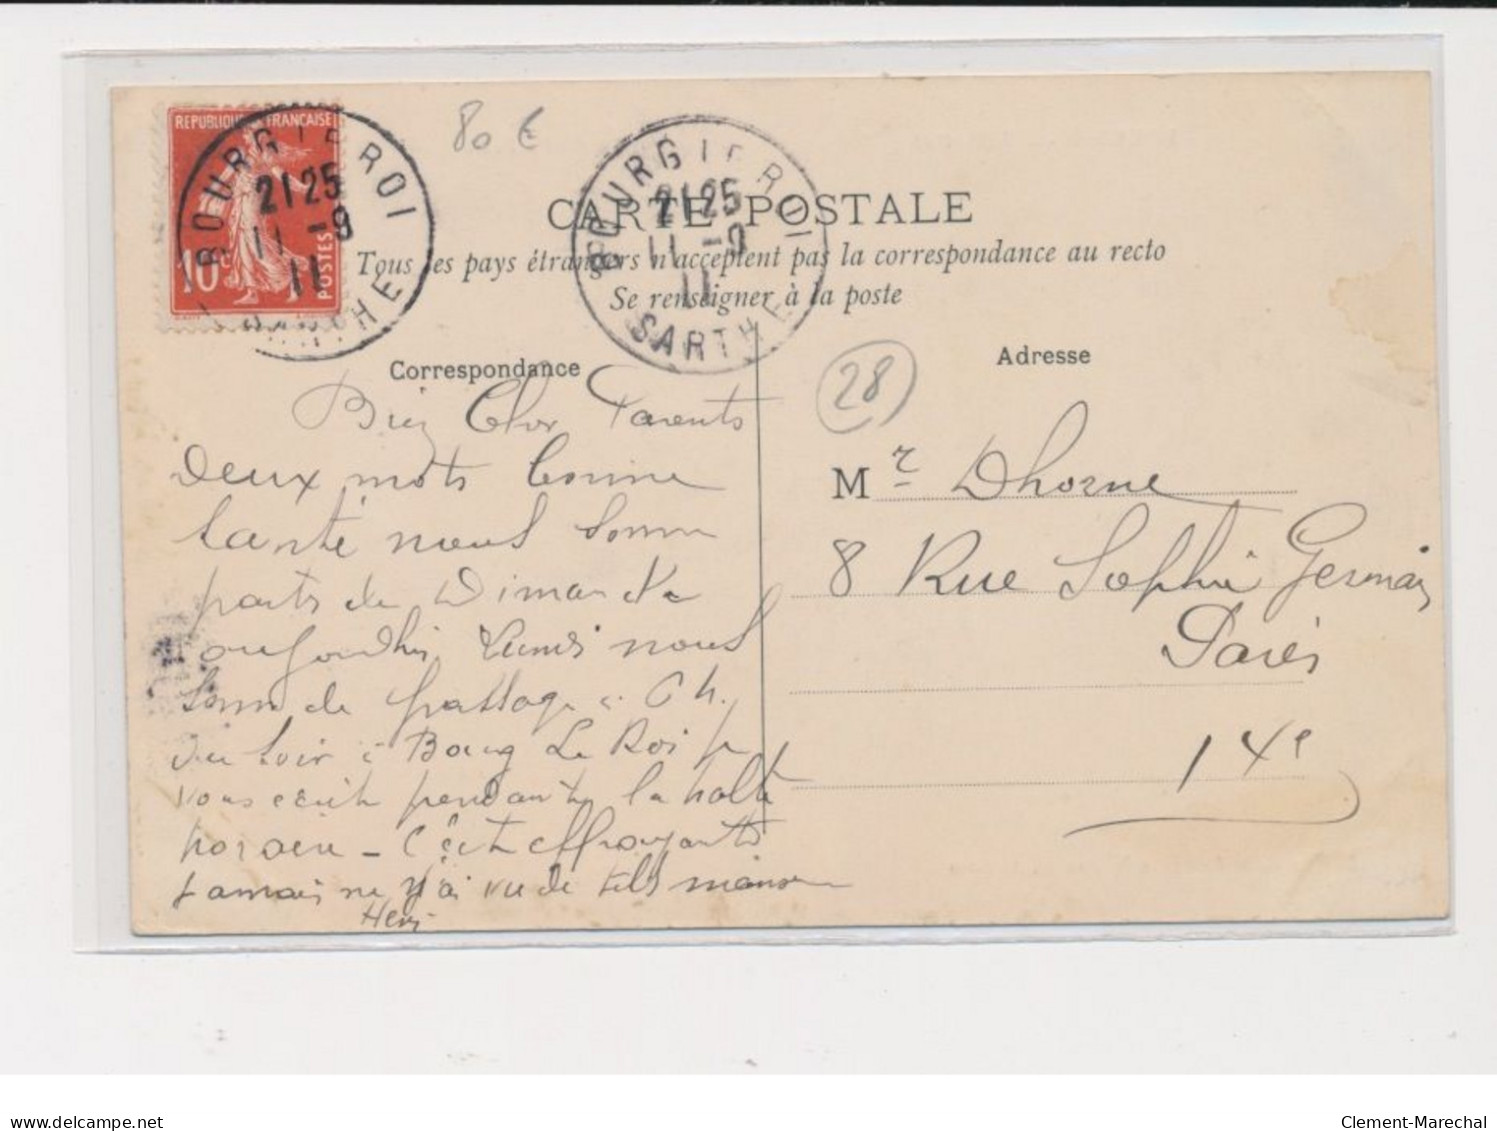 REPUBLIQUE FRANÇAISE
10c POSTES
BOURG LE ROI
21 25
11 - 9
11
SARTHE
80 €
BOURG LE ROI
21 25
11 - 9
11
SARTHE
CARTE POSTALE
Tous les pays étrangers n'acceptent pas la correspondance au recto
Se renseigner à la poste
Correspondance
Adresse
28
Bien Cher Parents
Deux mots bonne
santé nous somm
parts de Dimanche
aujourdhui Lundi nous
somm de passage a 6 h.
du soir à Bourg Le Roi je
vous écrit pendant la halte
horaire - C'est effroyants
Jamais ne j'ai vu de tels manœu
Henri
Mr Dhorne
8 Rue Sophie Germain
Paris
14e
delcampe.net
Clement-Marechal